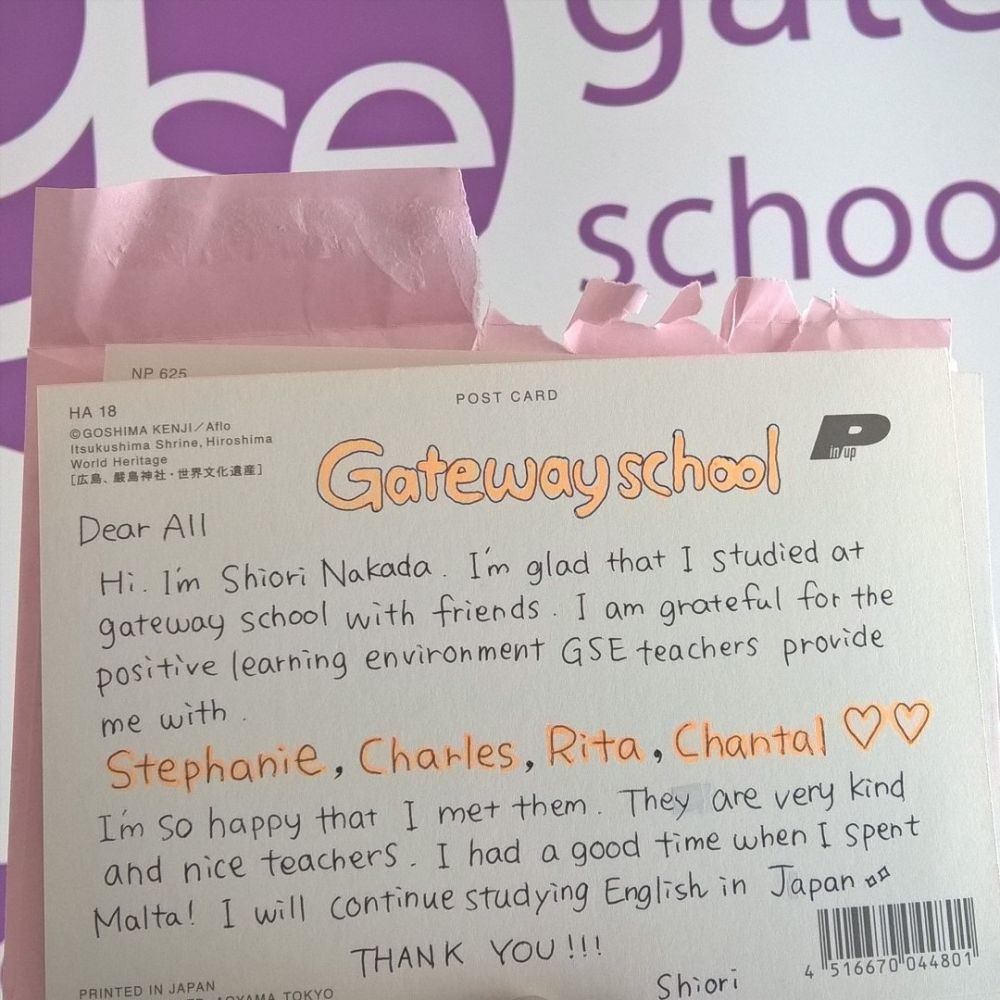 gse
gate
schoo
NP 625
HA 18
POST CARD
©GOSHIMA KENJI／Aflo
Itsukushima Shrine, Hiroshima
World Heritage
［広島、厳島神社・世界文化遺産］
P
in up
Gateway school
Dear All
Hi. I'm Shiori Nakada. I'm glad that I studied at
gateway school with friends. I am grateful for the
positive learning environment GSE teachers provide
me with.
Stephanie, Charles, Rita, Chantal ♡♡
I'm so happy that I met them. They are very kind
and nice teachers. I had a good time when I spent
Malta! I will continue studying English in Japan
THANK YOU!!!
Shiori
4 516670 044801
PRINTED IN JAPAN
AOYAMA TOKYO